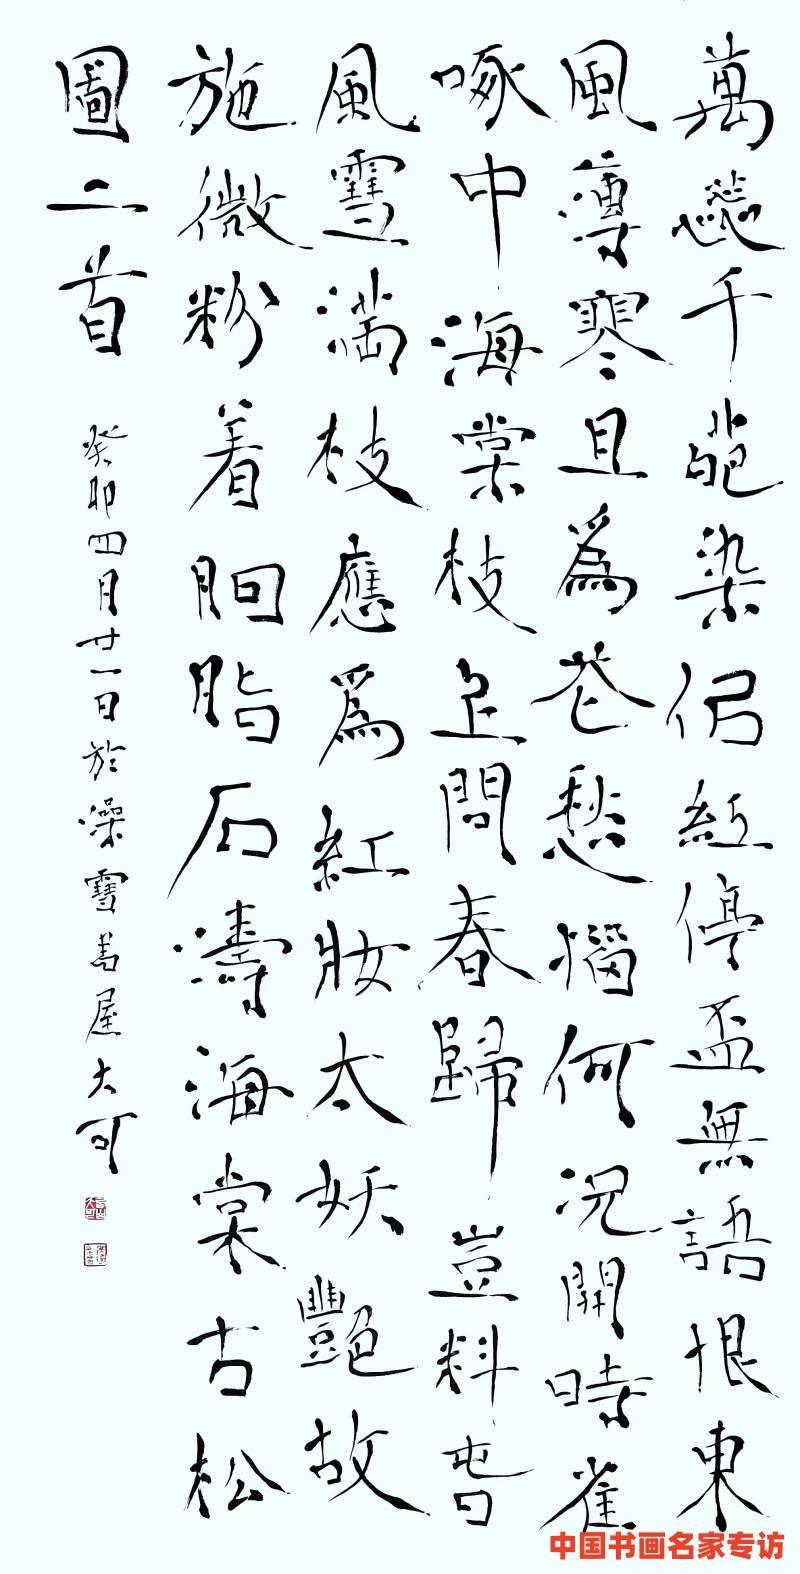 萬蕊千葩染佀紅停盃無語恨東
風尊寒且爲花愁惱何況開時雀
啄中海棠枝上問春歸豈料春
風雪滿枝應爲紅妝太妖艷故
施微粉着胭脂石濤海棠古松
圖二首
癸卯四月廿一日於澡雪書屋大可
中国书画名家专访